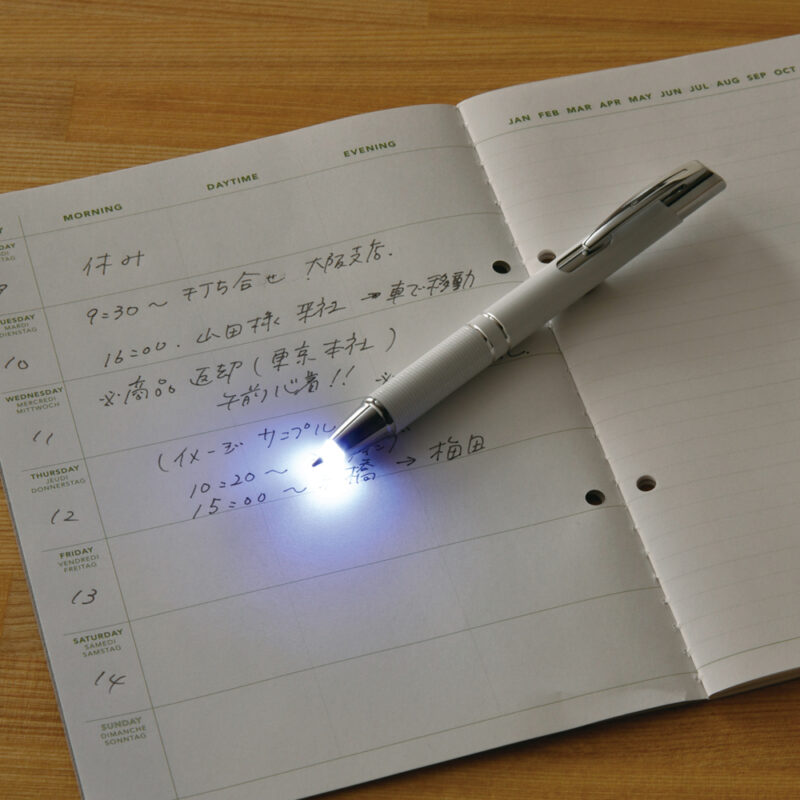 JAN FEB MAR APR MAY JUN JUL AUG SEP OCT
MORNING DAYTIME EVENING
休み
9
9:30〜 打ち合せ 大阪支店.
TUESDAY
MARDI
DIENSTAG
10
16:00. 山田様 来社 → 車で移動
※商品 返却(東京本社)
WEDNESDAY
MERCREDI
MITTWOCH
午前必着!! ※
11
(イメージ サンプル
THURSDAY
JEUDI
DONNERSTAG
10:20〜
12
15:00〜 橋 → 梅田
FRIDAY
VENDREDI
FREITAG
13
SATURDAY
SAMEDI
SAMSTAG
14
SUNDAY
DIMANCHE
SONNTAG